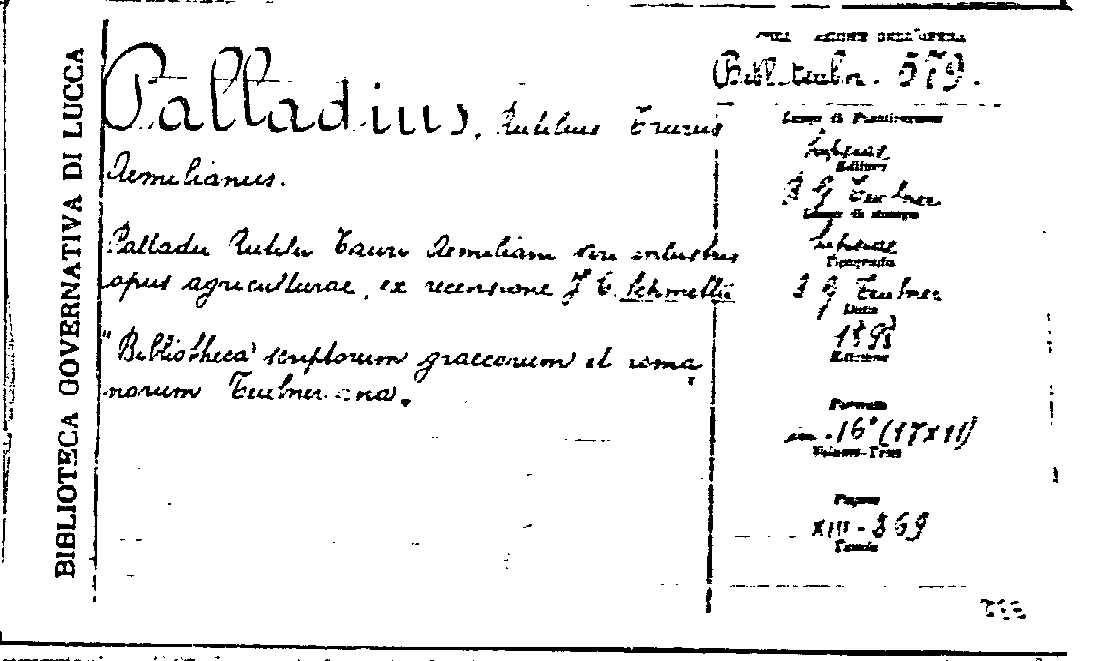 BIBLIOTECA GOVERNATIVA DI LUCCA
Palladius, Rutilius Taurus
Aemilianus.
Palladii Rutilii Tauri Aemiliani viri inlustris
opus agriculturae, ex recensione J. C. Schmittii
"Bibliotheca scriptorum graecorum et roma
norum Teubneriana.
DELL'OPERA
Bibl. teubn. 579.
Luogo di Pubblicazione
Lipsiae
Editore
B G Teubner
Luogo di stampa
Lipsiae
Tipografia
B G Teubner
Data
1898
Edizione
Formato
in-16° (17x11)
Volumi-Tomi
Pagine
XIII-269
Tavole